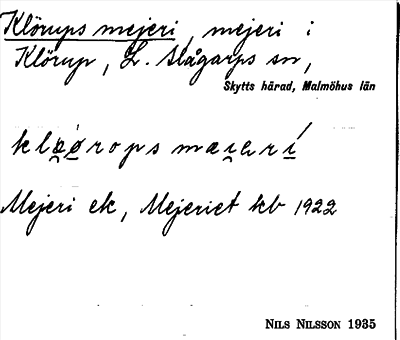 Klörups mejeri, mejeri i
Klörup, L. Slågarps sn,
Skytts härad, Malmöhus län
Mejeri ek, Mejeriet kb 1922
NILS NILSSON 1935